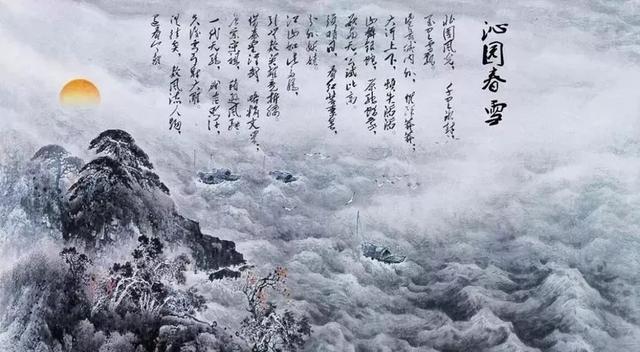 沁园春 雪
北国风光，千里冰封，
万里雪飘。
望长城内外，惟余莽莽，
大河上下，顿失滔滔。
山舞银蛇，原驰蜡象，
欲与天公试比高。
须晴日，看红装素裹，
分外妖娆。
江山如此多娇，
引无数英雄竞折腰。
惜秦皇汉武，略输文采，
唐宗宋祖，稍逊风骚。
一代天骄，成吉思汗，
只识弯弓射大雕。
俱往矣，数风流人物，
还看今朝。